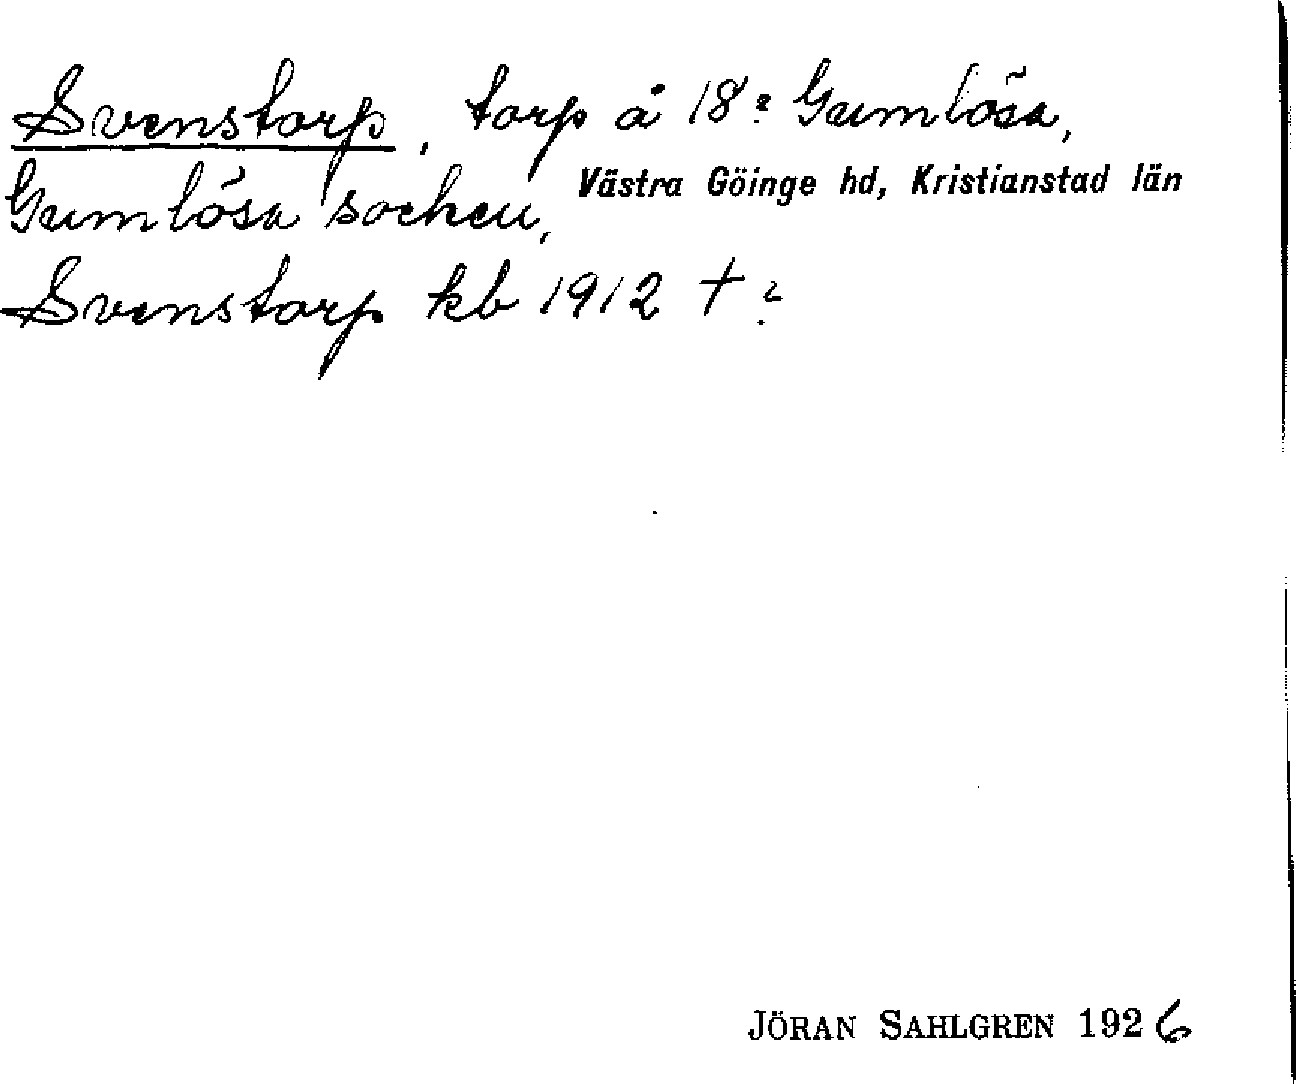 Svenstorp, torp å 18:2 Gumlösa,
Gumlösa socken, Västra Göinge hd, Kristianstad län
Svenstorp kb 1912 + ?
JÖRAN SAHLGREN 1926